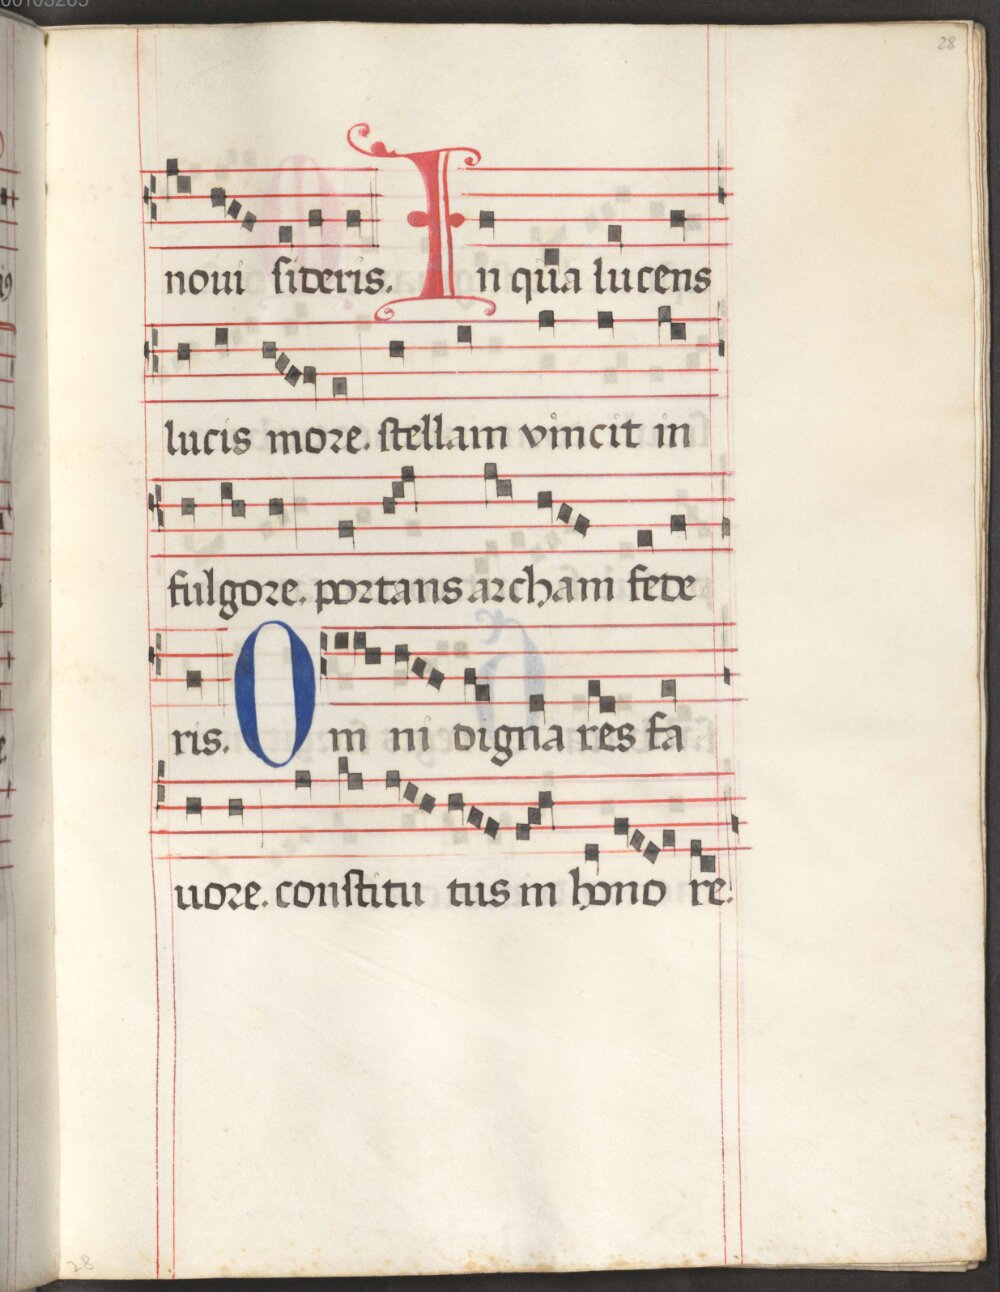 00103265
28
noui sideris. In qua lucens
lucis more. stellam vincit in
fulgore. portans archam fede
ris. Om ni digna res fa
uore. constitu tus in hono re.
28